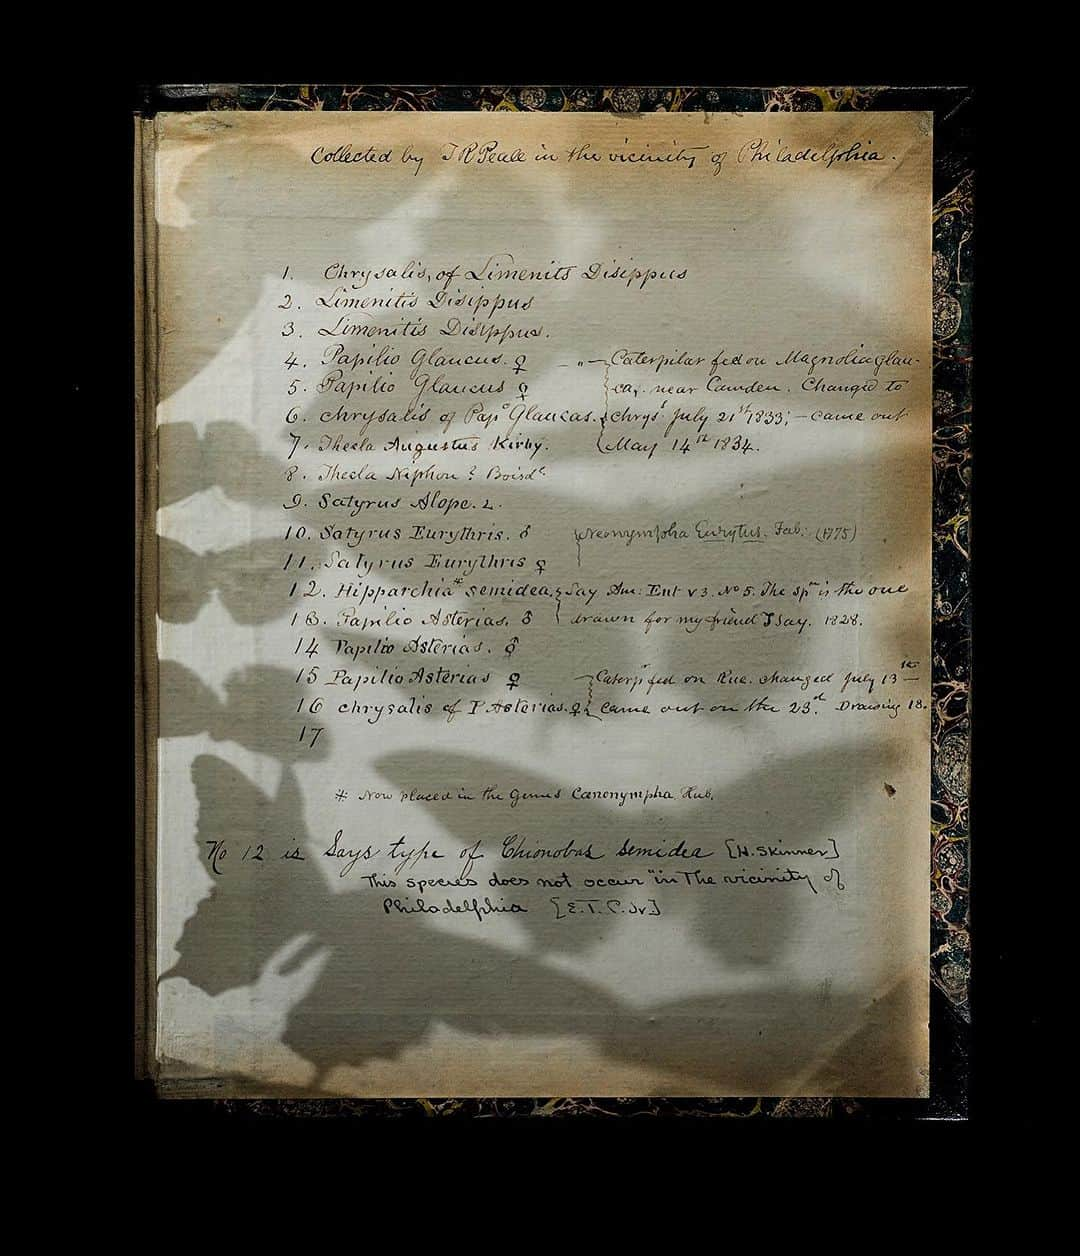 Collected by T R Peale in the vicinity of Philadelphia.
1. Chrysalis, of Limenits Disippus
2. Limenitis Disippus
3. Limenitis Disippus.
4. Papilio Glaucus. ♀ — " — Caterpilar fed on Magnolia glau-
5. Papilio Glaucus ♀ ca, near Camden. Changed to
6. chrysalis of Papo Glaucas. chrys. July 21st 1833; — came out
7. Thecla Augustus Kirby. May 14th 1834.
8. Thecla Niphon? Boisdl
9. Satyrus Alope.
10. Satyrus Eurythris. ♂ Neonympha Eurytus. Fab: (1775)
11. Satyrus Eurythris ♀
12. Hipparchia* semidea. Say Am: Ent v 3. No 5. The spn is the one
13. Papilio Asterias. ♂ drawn for my friend T Say. 1828.
14 Papilio Asterias. ♂
15 Papilio Asterias ♀ Caterp fed on Rue. changed July 13th
16 chrysalis of P. Asterias. ♀ came out on the 23.d Drawing 18.
17
* Now placed in the Genus Cænonympha Hub.
No 12 is Says type of Chionobas semidea [H. Skinner]
This species does not occur "in the vicinity of
Philadelphia [E. T. C. Jr.]